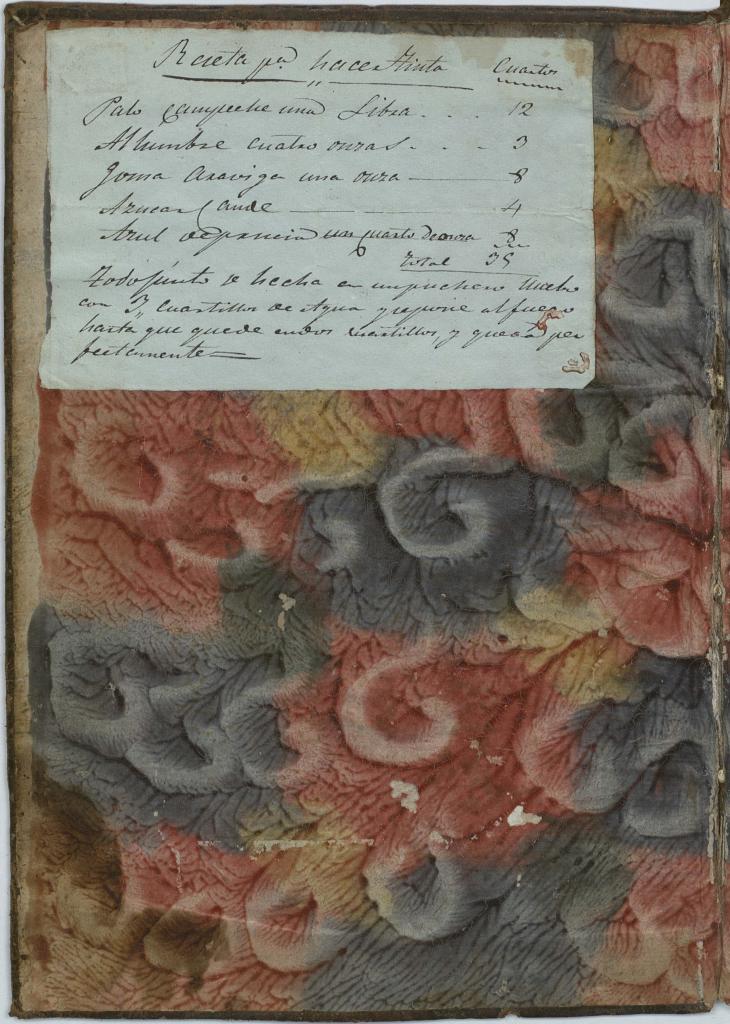 Receta pa. hacer tinta Cuartos
Palo Campeche una Libra . . . 12
Alhumbre cuatro onzas . . . 3
Goma Araviga una onza — 8
Azucar Cande — 4
Azul de prancia un cuarto de onza 8
Total 35
Todo junto se hecha en un puchero
con 3,, cuartillos de Agua y se pone al fuego
hasta que quede en dos cuartillos y queda per
fectamente=